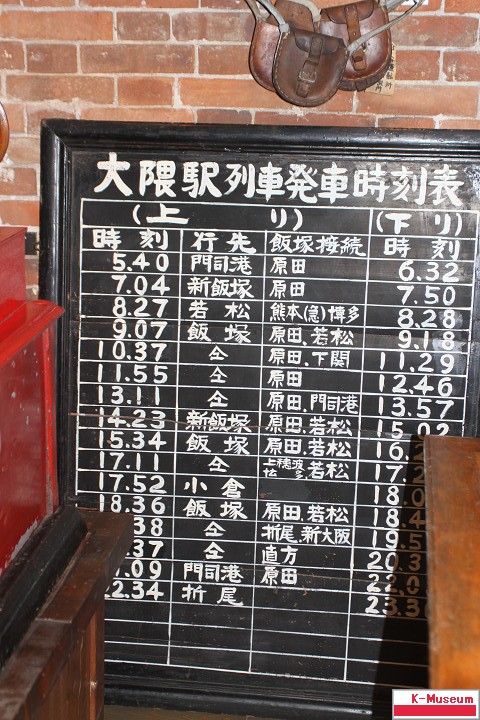 大隈駅列車発車時刻表
(上り) (下り)
時刻 行先 飯塚接続 時刻
5.40 門司港 原田 6.32
7.04 新飯塚 原田 7.50
8.27 若松 熊本(急)博多 8.28
9.07 飯塚 原田.若松 9.18
10.37 仝 原田.下関 11.29
11.55 仝 原田 12.46
13.11 仝 原田.門司港 13.57
14.23 新飯塚 原田.若松 15.02
15.34 飯塚 原田.若松 16.
17.11 仝 上穂波 佐多 若松 17.
17.52 小倉 18.0
18.36 飯塚 原田.若松 18.4
.38 仝 折尾.新大阪 19.5
.37 仝 直方 20.3
.09 門司港 原田 22.0
22.34 折尾 23.3
K-Museum